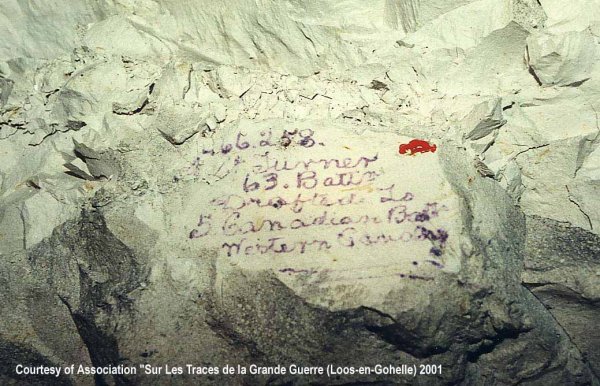 466.258.
Turner
63. Battn
Drafted to
5 Canadian Batt
Western Cavalry
Courtesy of Association "Sur Les Traces de la Grande Guerre (Loos-en-Gohelle) 2001